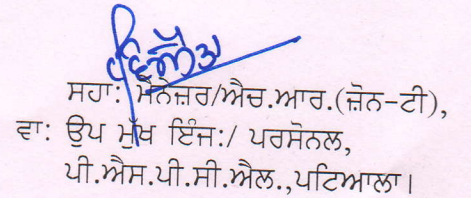 ਸਹਾ: ਮੈਨੇਜ਼ਰ/ਐਚ.ਆਰ.(ਜ਼ੋਨ-ਟੀ),
ਵਾ: ਉਪ ਮੁੱਖ ਇੰਜ:/ ਪਰਸੋਨਲ,
ਪੀ.ਐਸ.ਪੀ.ਸੀ.ਐਲ.,ਪਟਿਆਲਾ।